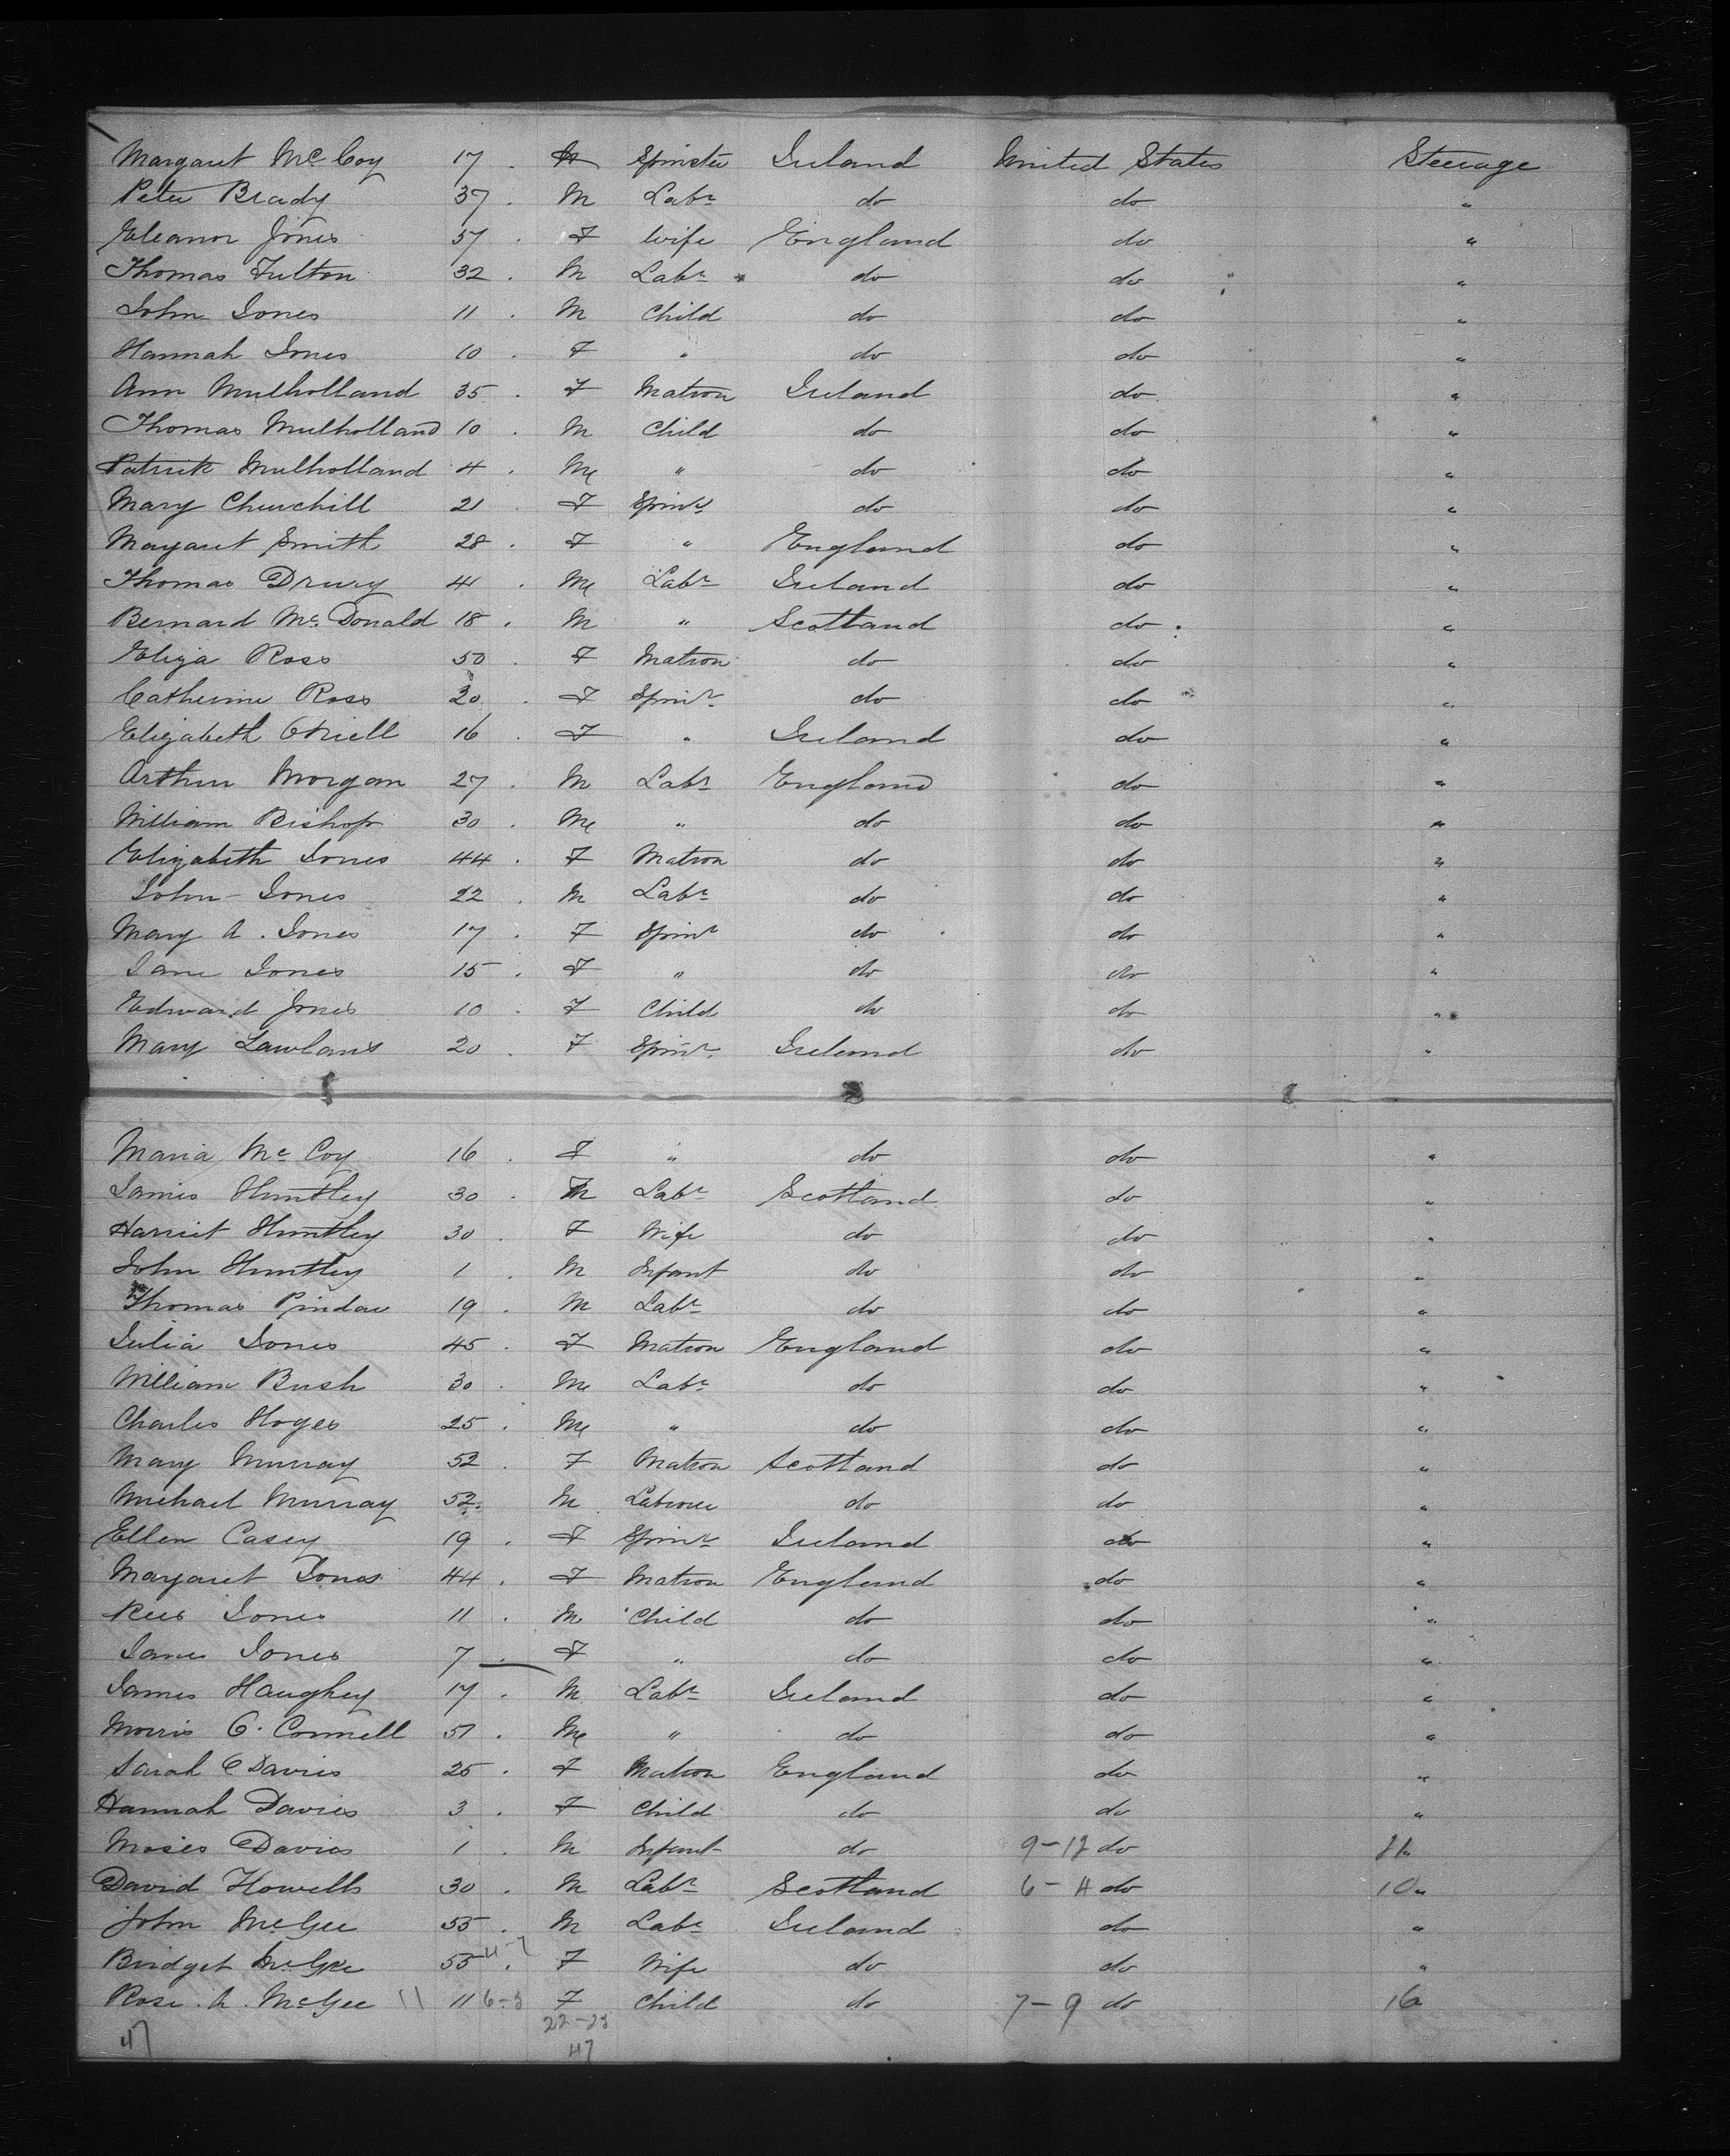 Margaret McCoy 17 . Spinster Ireland United States Steerage
Peter Brady 37 . M Labr do do "
Eleanor Jones 57 . F Wife England do "
Thomas Fulton 32 . M Labr do do "
John Jones 11 . M Child do do "
Hannah Jones 10 . F " do do "
Ann Mulholland 35 . F Matron Ireland do "
Thomas Mulholland 10 . M Child do do "
Patrick Mulholland 4 . M " do do "
Mary Churchill 21 . F Spinr do do "
Margaret Smith 28 . F " England do "
Thomas Drury 41 . M Labr Ireland do "
Bernard McDonald 18 . M " Scotland do "
Eliza Ross 50 . F Matron do do "
Catherine Ross 30 . F Spinr do do "
Elizabeth ONiell 16 . F " Ireland do "
Arthur Morgan 27 . M Labr England do "
William Bishop 30 . M " do do "
Elizabeth Jones 44 . F Matron do do "
John Jones 22 . M Labr do do "
Mary A. Jones 17 . F Spinr do do "
Jane Jones 15 . F " do do "
Edward Jones 10 . F Child do do "
Mary 20 . F Spinr Ireland do "
Maria McCoy 16 . F " do do "
James Huntley 30 . M Labr Scotland do "
Harriet Huntley 30 . F Wife do do "
John Huntley 1 . M Infant do do "
Thomas 19 . M Labr do do "
Julia Jones 45 . F Matron England do "
William Bush 30 . M Labr do do "
Charles Hoges 25 . M " do do "
Mary Murray 52 . F Matron Scotland do "
Michael Murray 52 . M do do "
Ellen Casey 19 . F Spinr Ireland do "
Margaret Jones 44 . F Matron England do "
Rees Jones 11 . M Child do do "
Jones 7 . F " do do "
James Haughey 17 . M Labr Ireland do "
Morris O. Connell M " do do "
Sarah Davies 25 . F Matron England do "
Hannah Davies 3 . F Child do do "
Moses Davies 1 . M Infant do do
David Howells 30 . M Labr Scotland do 10 "
John McGee 55 . M Labr Ireland do "
Bridget McGee 55 . F Wife do do "
Rose. A. McGee 11 11 F Child do 7-9 do 16
47 47